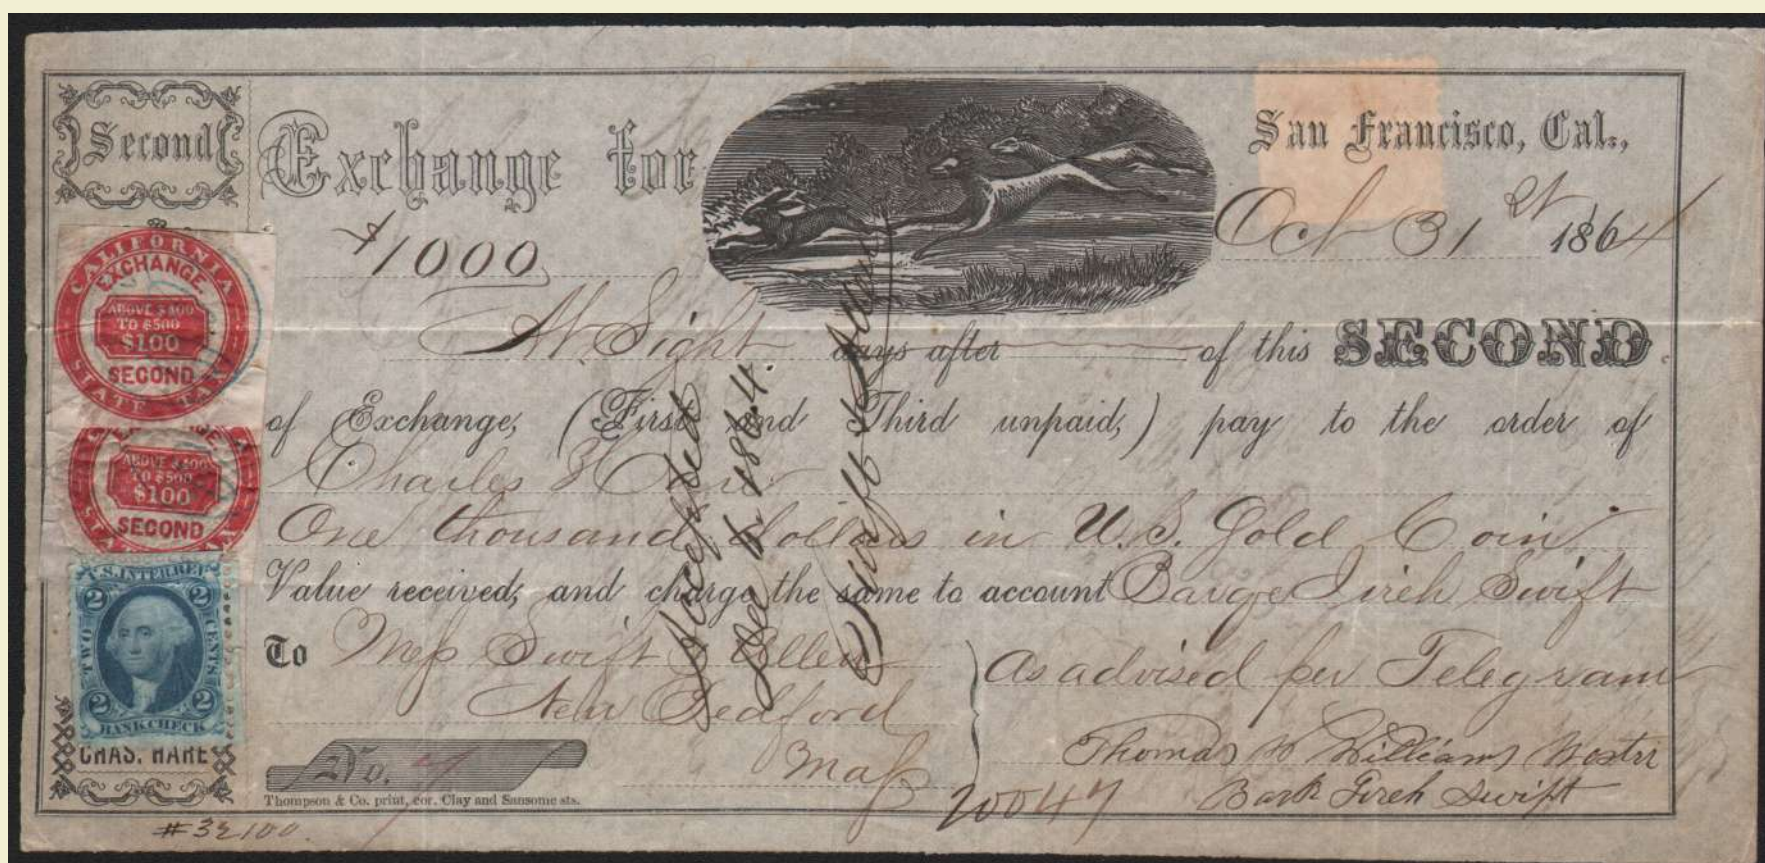 Second
Exchange for
San Francisco, Cal.,
$1000
Oct 31st 1864
At Sight days after of this SECOND
of Exchange, (First and Third unpaid,) pay to the order of
Charles Hare
One thousand Dollars in U.S. Gold Coin
Value received, and charge the same to account Barque Jireh Swift
To Mess Swift & Allen
New Bedford
Mass
As advised per Telegram
Thomas W Williams Master
Bark Jireh Swift
No. 7
Thompson & Co. print, cor. Clay and Sansome sts.
20047
#32100.
Accepted
Dec 1864.
Swift & Allen
CALIFORNIA
EXCHANGE
ABOVE $400
TO $500
$1.00
SECOND
STATE
ABOVE $400
TO $500
$1.00
SECOND
U.S. INTER. REV.
2 2
TWO CENTS
2 2
BANK CHECK
CHAS. HARE